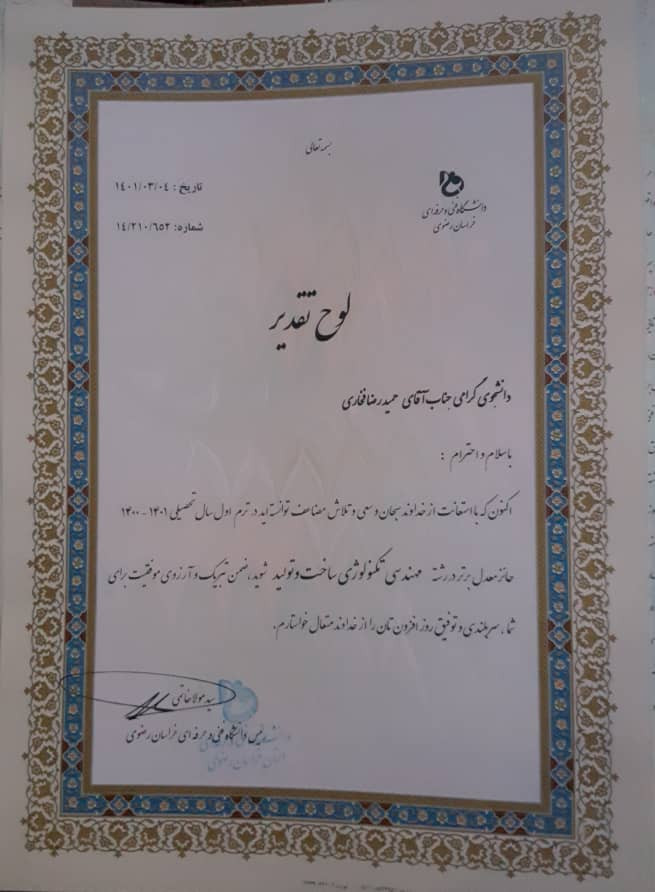 بسمه تعالی
دانشگاه فنی و حرفه ای
خراسان رضوی
تاریخ : ۱۴۰۱/۰۳/۰۴
شماره: ۱۴/۲۱۰/۶۵۲
لوح تقدیر
دانشجوی گرامی جناب آقای حمیدرضا فخاری
با سلام و احترام :
اکنون که با استعانت از خداوند سبحان و سعی و تلاش مضاعف توانسته اید در ترم اول سال تحصیلی ۱۴۰۱ - ۱۴۰۰
حائز معدل برتر در رشته مهندسی تکنولوژی ساخت و تولید شوید، ضمن تبریک و آرزوی موفقیت برای
شما، سربلندی و توفیق روز افزون تان را از خداوند متعال خواستارم.
رئیس دانشگاه فنی و حرفه ای خراسان رضوی